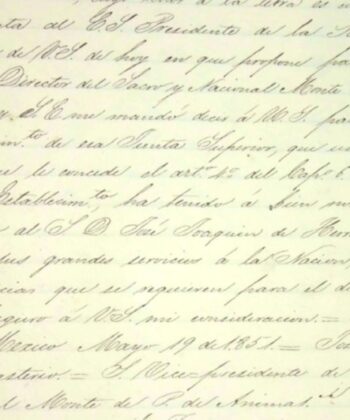 á la letra es
ta al E. S. Presidente de la
de V.S. de hoy en que propone
Director del Sacro y Nacional Monte
S. E. me mandó decir á V. S.
im.to de esa Junta Superior, que
le concede el art.o 4.o del Cap.o 6.
Establecim.to, ha tenido á bien
al S. D. José Joaquin de
sus grandes servicios á la Nacion,
cias que se requieren para el
seguro á V.S. mi consideracion. =
Mexico Mayo 19 de 1851. =
asterio. = S. Vice-presidente de
l Monte de P. de Animas.